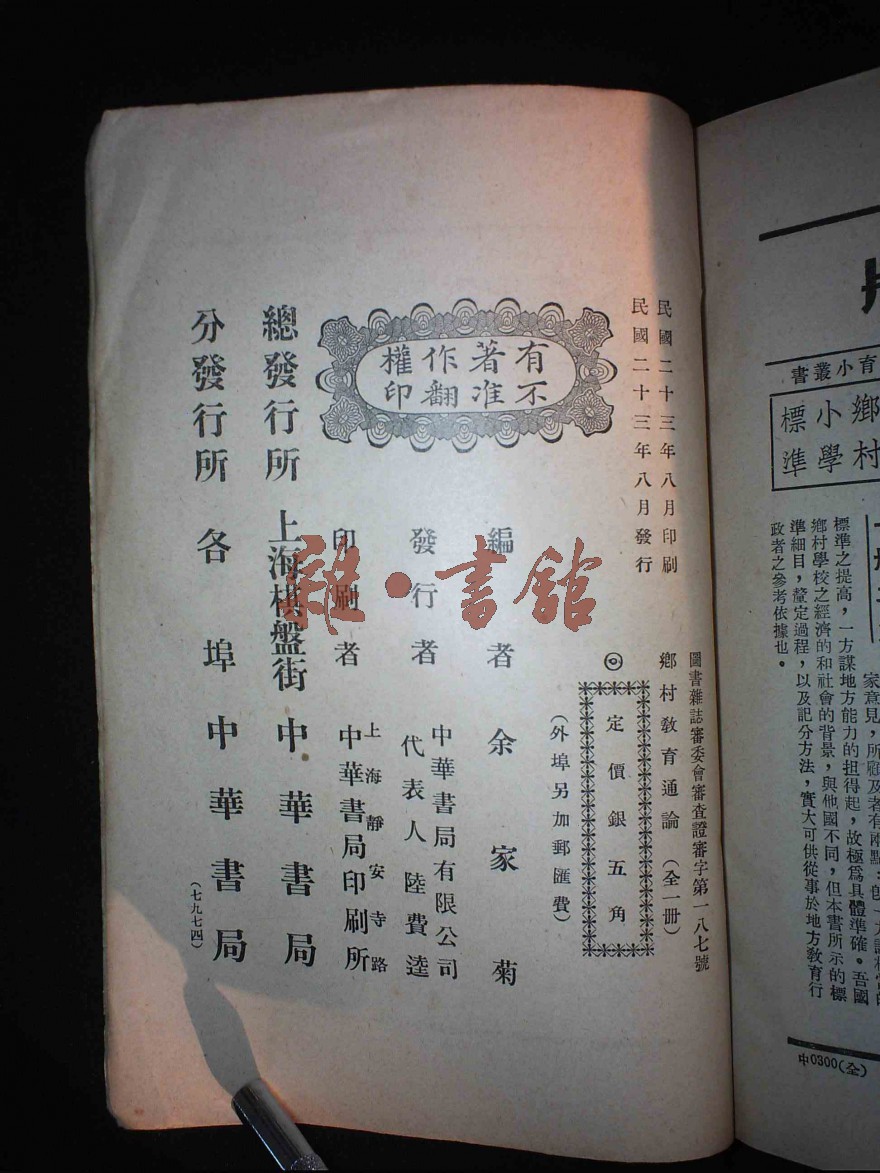 民國二十三年八月印刷
民國二十三年八月發行
圖書雜誌審委會審查證審字第一八七號
鄉村教育通論（全一冊）
◎定價銀五角
（外埠另加郵匯費）
有著作權
不准翻印
編者 余家菊
發行者 中華書局有限公司
代表人 陸費逵
印刷者 上海靜安寺路
中華書局印刷所
總發行所 上海棋盤街 中華書局
分發行所 各埠中華書局
（七九七四）
雜·書館
育小叢書
鄉村
小學
標準
家意見，所顧及者有兩點：
標準之提高，一方謀地方能力的担得起，故極爲具體準確。吾國
鄉村學校之經濟的和社會的背景，與他國不同，但本書所示的標
準細目，釐定過程，以及記分方法，實大可供從事於地方教育行
政者之參考依據也。
中0300(全)